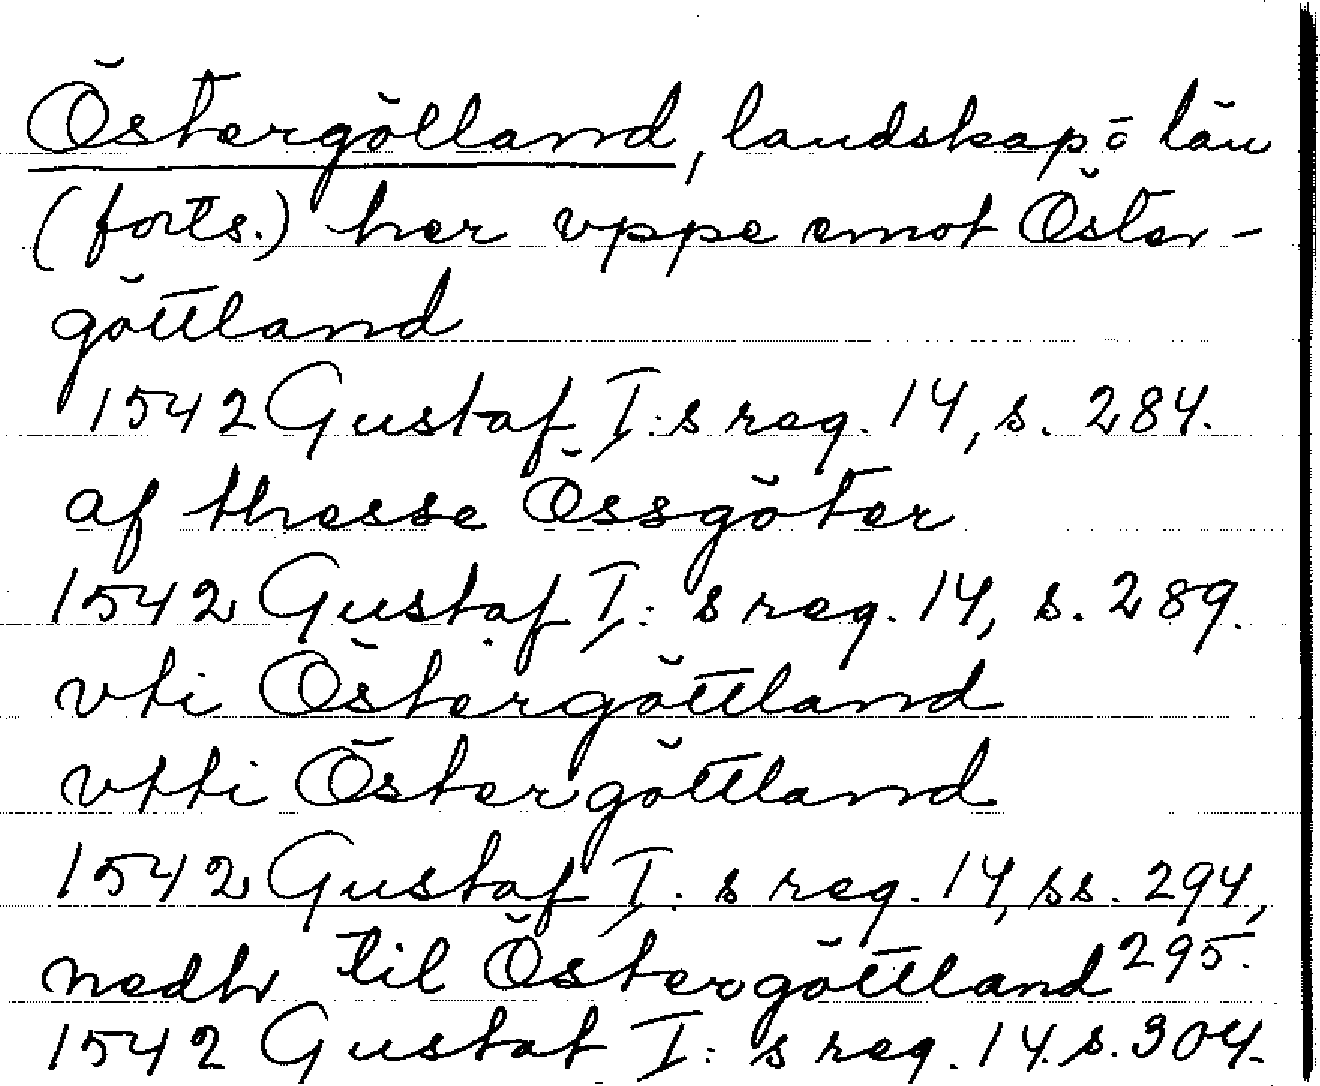 Östergötland, landskap o län
(forts.) her vppe emot Öster-
göttland
1542 Gustaf I:s reg. 14, s. 284.
af thesse Össgöter
1542 Gustaf I: s reg. 14, s. 289.
vti Östergöttland
vtti Östergöttland
1542 Gustaf I: s reg. 14, ss. 294,
295.
nedh til Östergöttland
1542 Gustaf I: s reg. 14. s. 304.